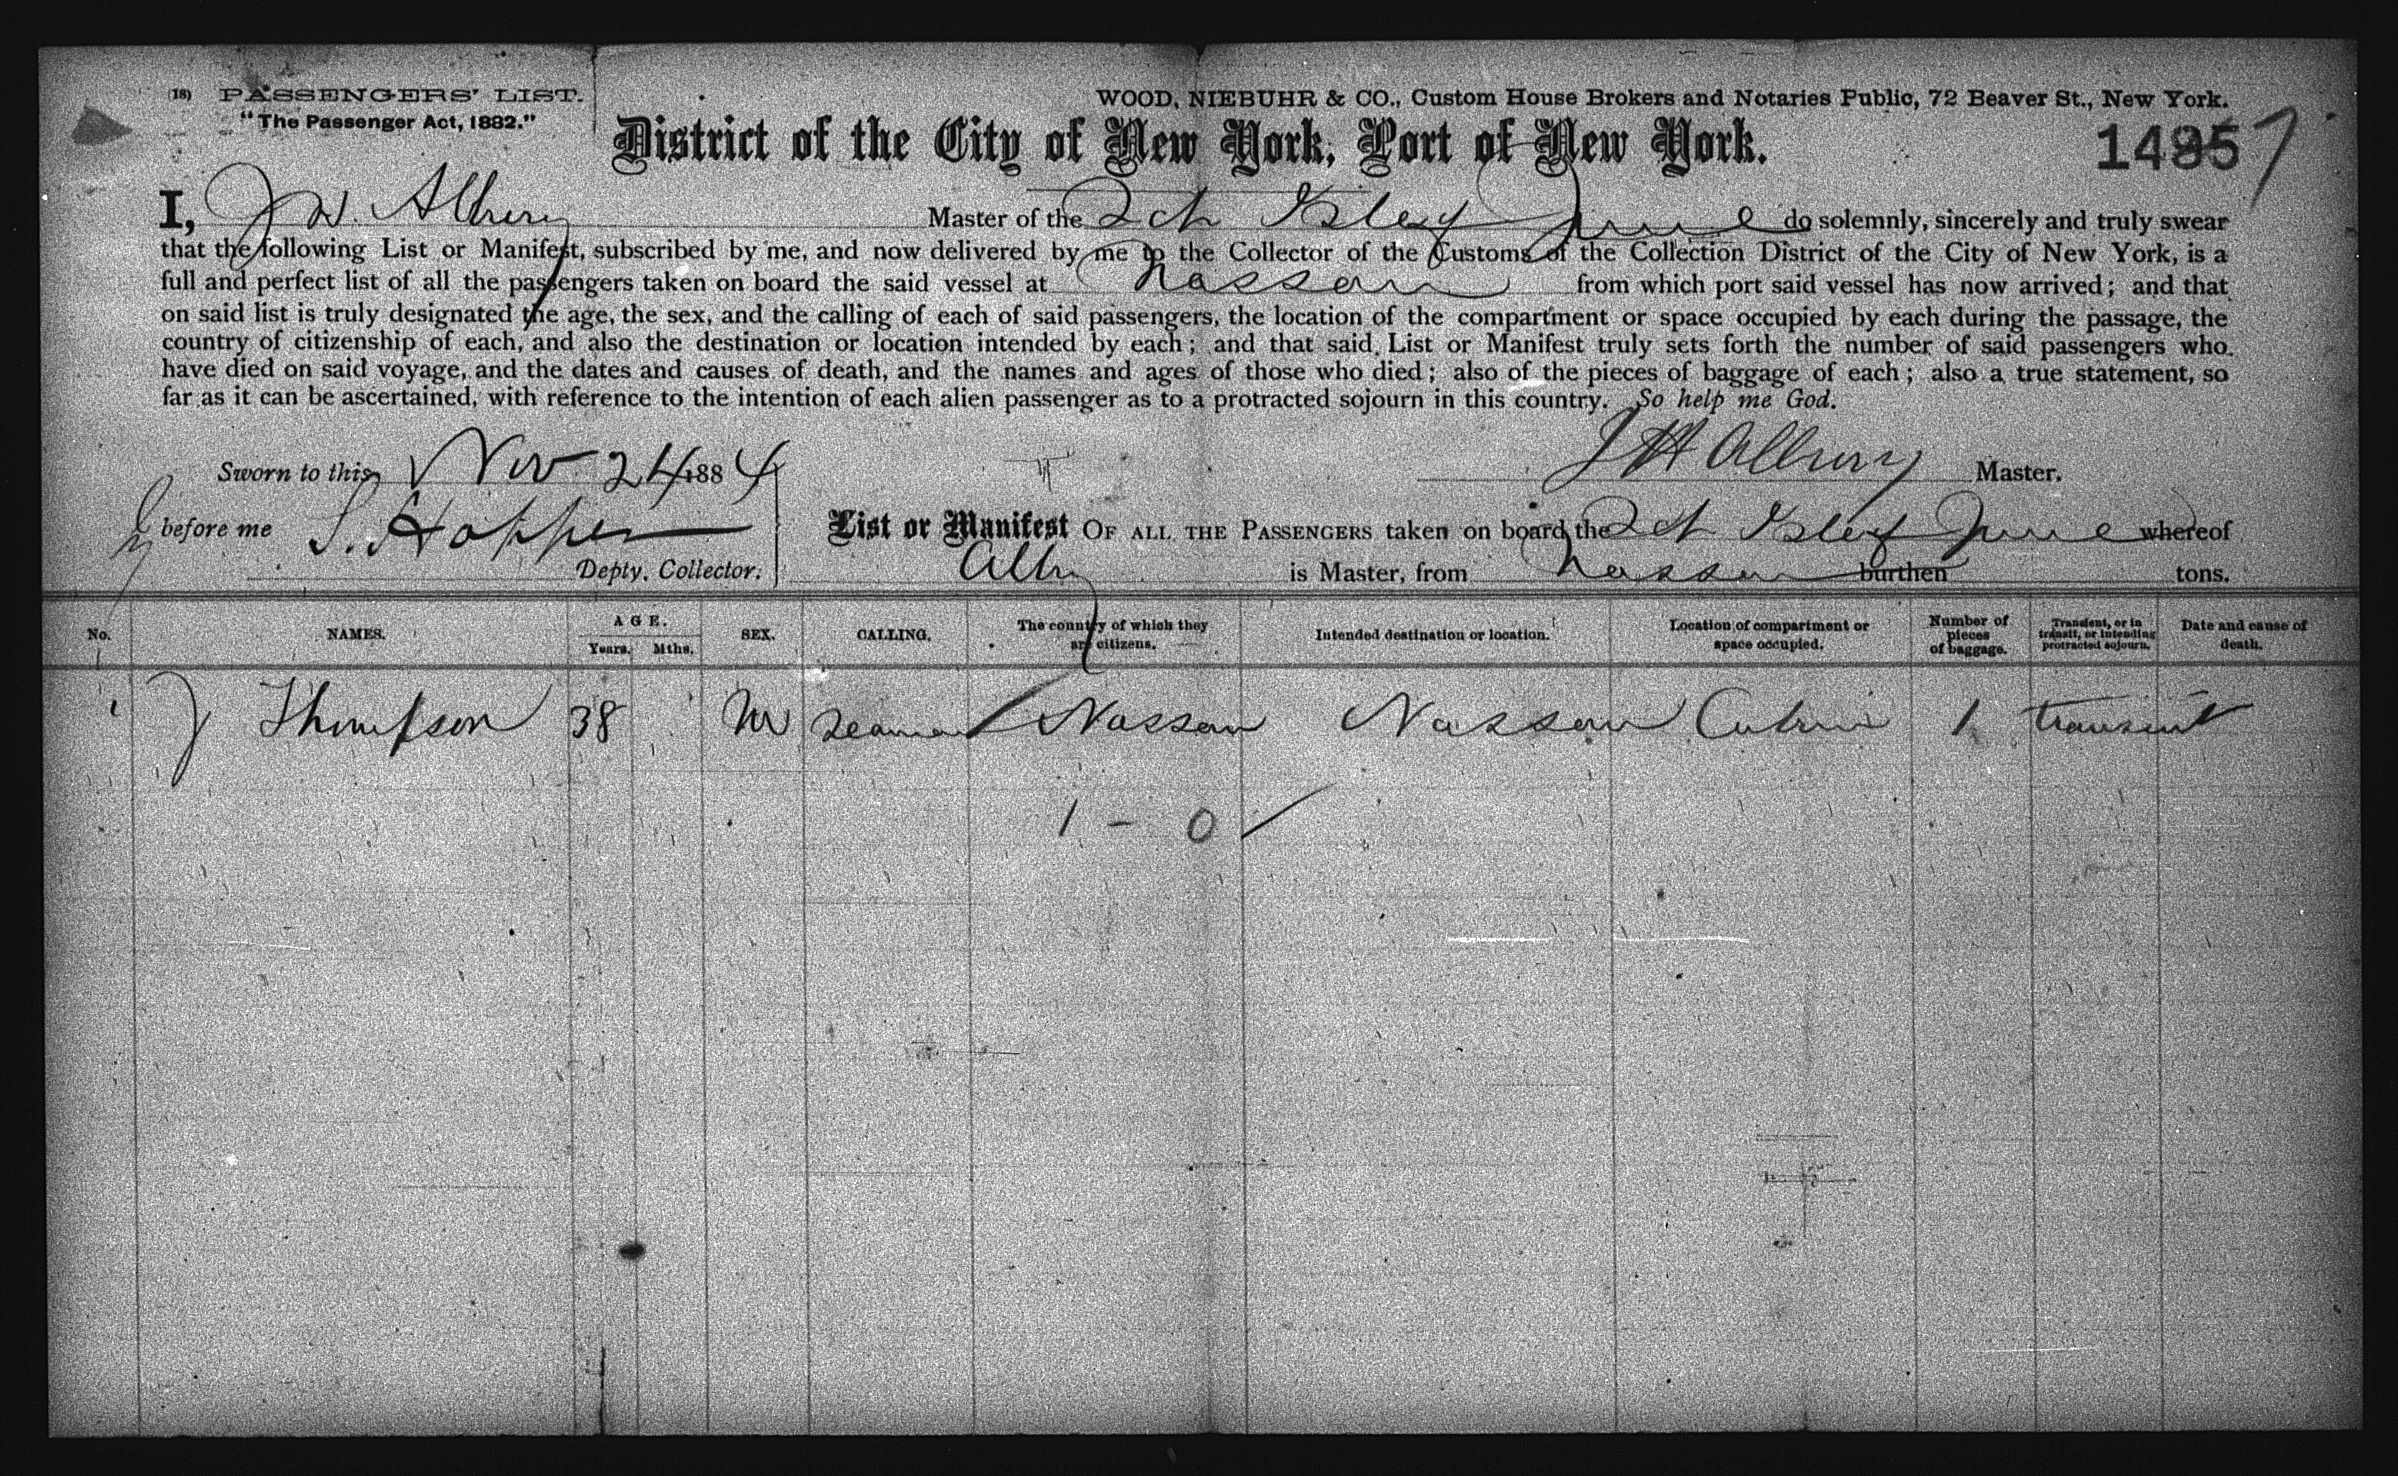 (18) PASSENGERS' LIST. WOOD, NIEBUHR & CO., Custom House Brokers and Notaries Public, 72 Beaver St., New York.
"The Passenger Act, 1882."
District of the City of New York, Port of New York. 1485 7
I, J W. Albury Master of the Sch Isley June do solemnly, sincerely and truly swear
that the following List or Manifest, subscribed by me, and now delivered by me to the Collector of the Customs of the Collection District of the City of New York, is a
full and perfect list of all the passengers taken on board the said vessel at Nassau from which port said vessel has now arrived; and that
on said list is truly designated the age, the sex, and the calling of each of said passengers, the location of the compartment or space occupied by each during the passage, the
country of citizenship of each, and also the destination or location intended by each; and that said List or Manifest truly sets forth the number of said passengers who
have died on said voyage, and the dates and causes of death, and the names and ages of those who died; also of the pieces of baggage of each; also a true statement, so
far as it can be ascertained, with reference to the intention of each alien passenger as to a protracted sojourn in this country. So help me God.
Sworn to this Nov 24 1884 J H Albury Master.
before me S. Hopper List or Manifest OF ALL THE PASSENGERS taken on board the Sch Isley June whereof
Depty. Collector. Alby is Master, from Nassau burthen tons.
No. NAMES. AGE. Years. Mths. SEX. CALLING. The country of which they are citizens. Intended destination or location. Location of compartment or space occupied. Number of pieces of baggage. Transient, or in transit, or intending protracted sojourn. Date and cause of death.
1 J Thompson 38 M Seaman Nassau Nassau Cabin 1 transient
1 - 0